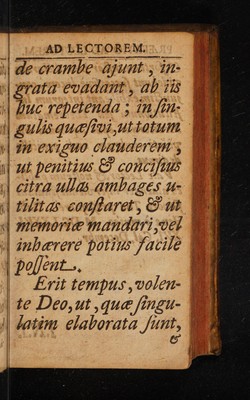 AD LECTOREM.
de crambe ajunt, in-
grata evadant, ab iis
huc repetenda; in ſin-
gulis quæſivi, ut totum
in exiguo clauderem,
ut penitius & conciſius
citra ullas ambages u-
tilitas conſtaret, & ut
memoriæ mandari, vel
inhærere potius facilè
poſſent.
Erit tempus, volen-
te Deo, ut, quæ ſingu-
latim elaborata ſunt,
&